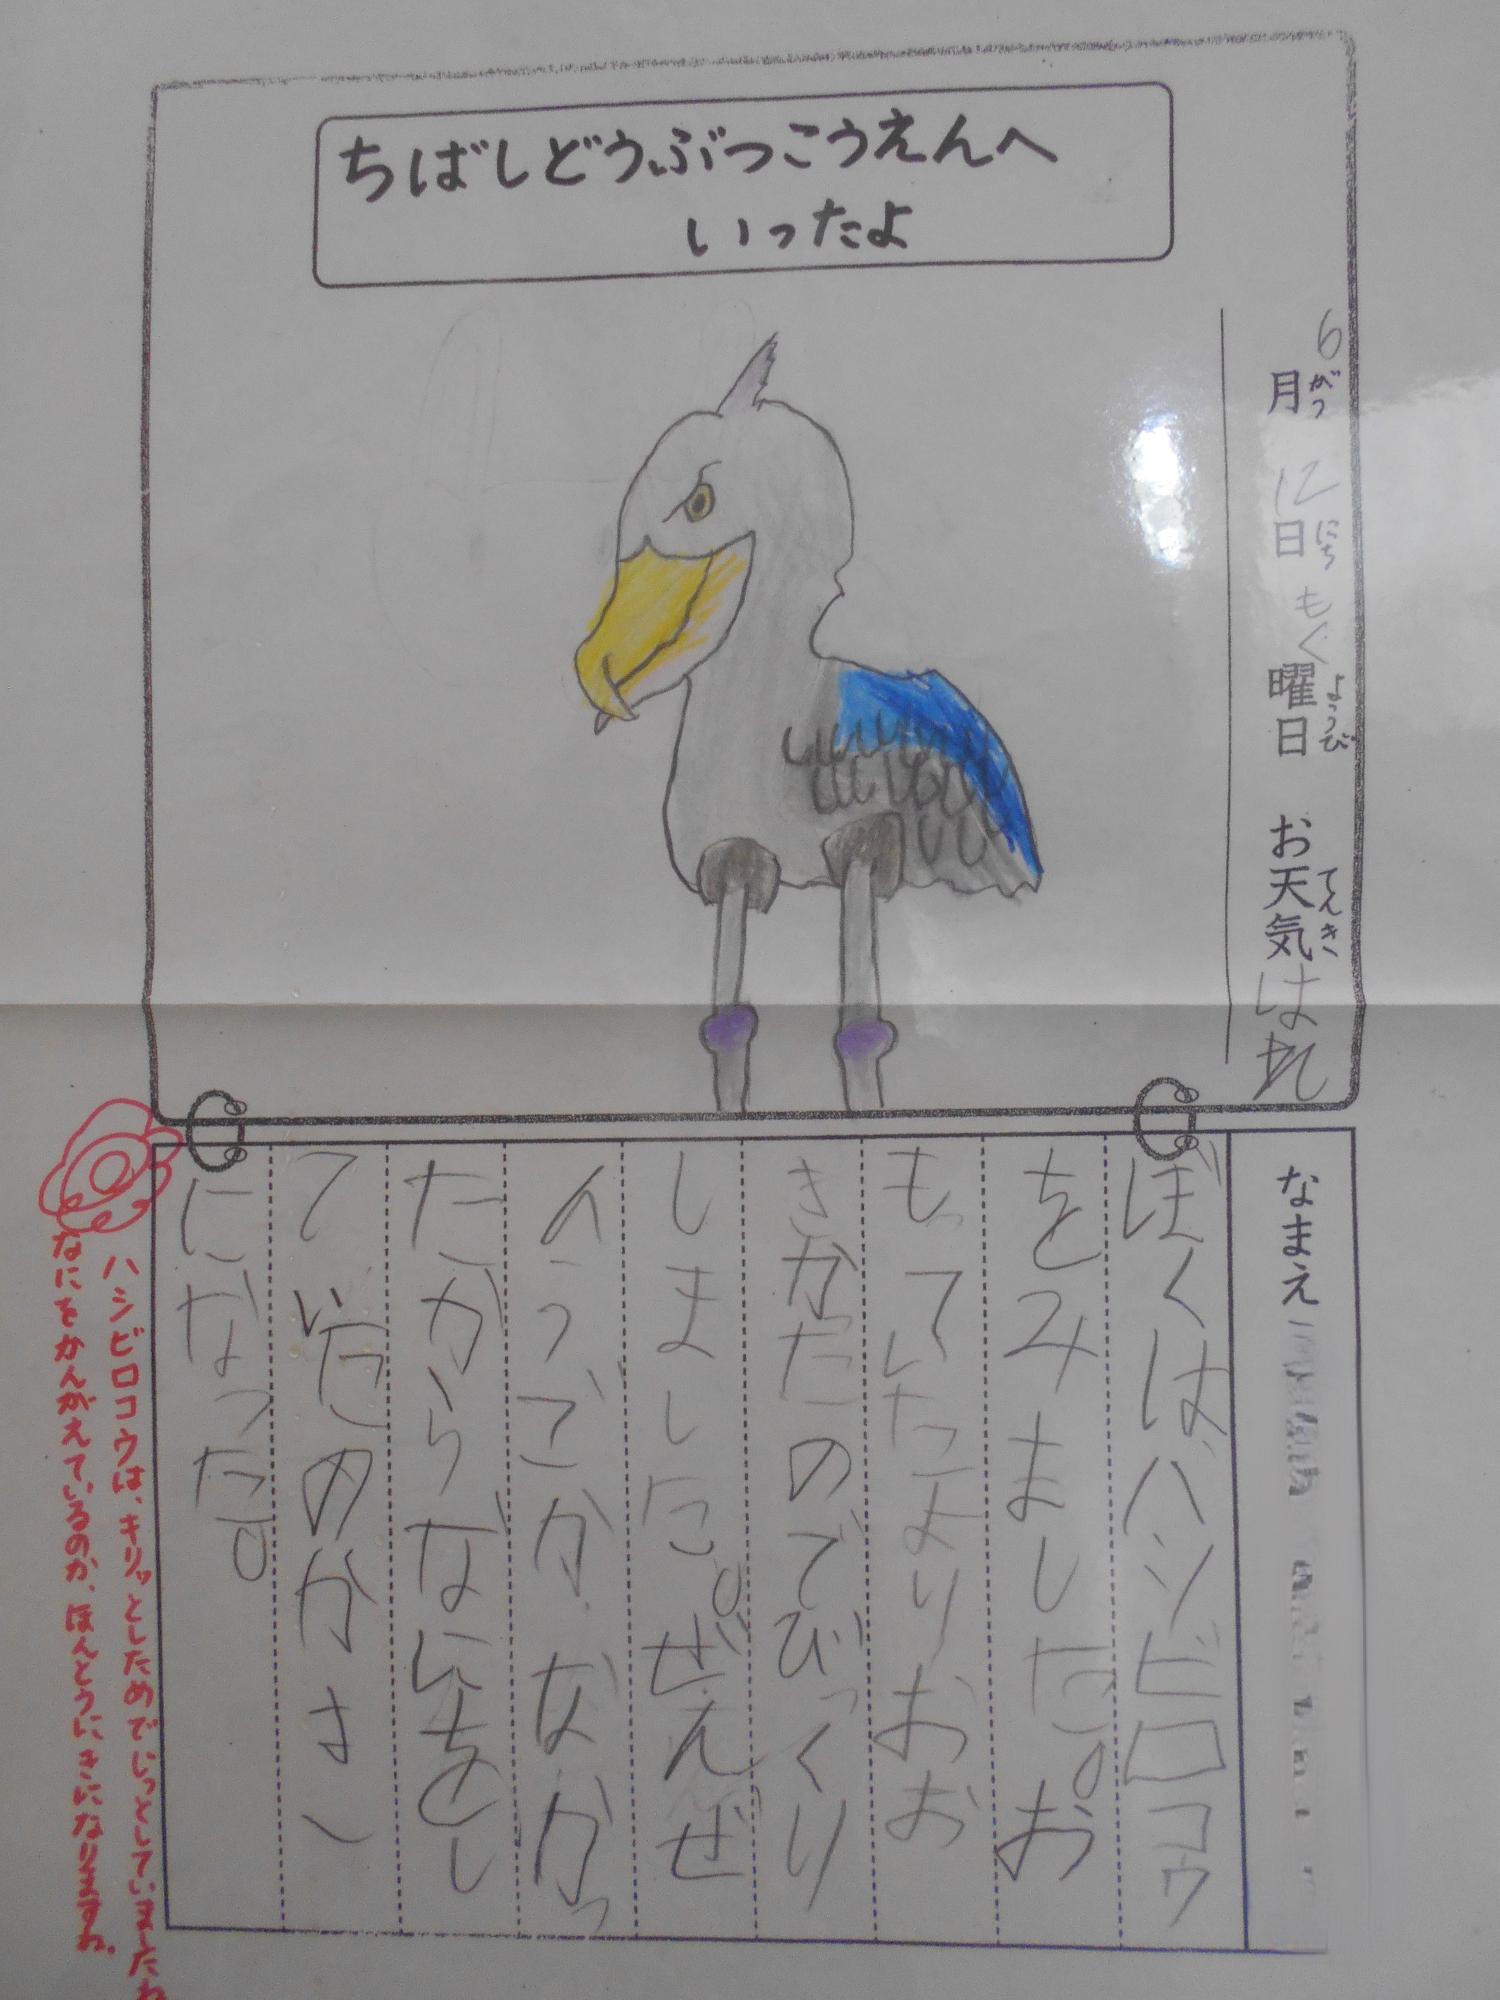 ちばしどうぶつこうえんへ
いったよ
6月12日もく曜日 お天気はれ
がつ にち ようび てんき
なまえ
ぼくは、ハシビロコウ
をみました。お
もってしたよりおお
きかったのでびっくり
しました。ぜんぜ
んうごかなかっ
たからなにをし
ていたのかき
になった。
ハシビロコウは、キリッとしためでじっとしていましたね
なにをかんがえているのか、ほんとうにきになりますね。